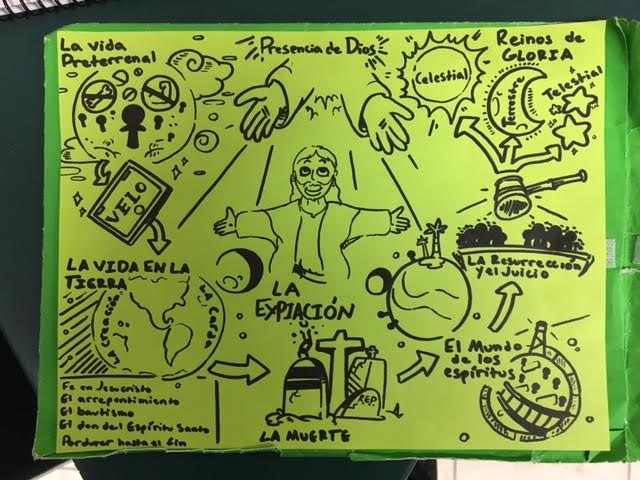 La vida
Preterrenal
Presencia de Dios
Reinos de
GLORIA
Celestial
Terrestre
Telestial
VELO
LA VIDA EN LA
TIERRA
La Creación
La Caída
LA
EXPIACIÓN
La Resurrección
y el Juicio
El Mundo
de los
espíritus
Fe en Jesucristo
El arrepentimiento
El bautismo
El don del Espíritu Santo
Perdurar hasta el fin
R.E.P.
LA MUERTE